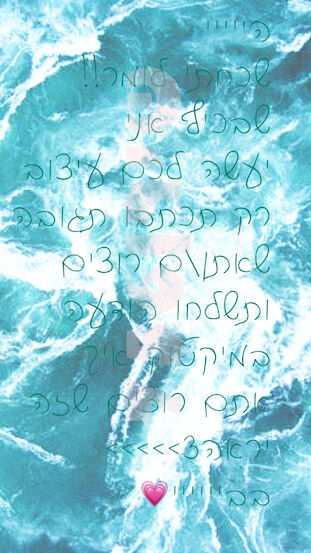 היייי
שכחתי לומר!!
שבכיף אני
יעשה לכם עיצוב
רק תכתבו תגובה
שאתן\ם רוצים
ותשלחו הודעה
במיקטוק איך
אתם רוצים שזה
יראהצ>>>>>
בביייייי💗